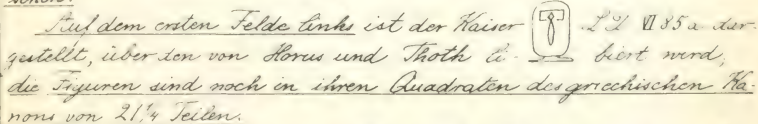 schen.
Auf dem ersten Felde links ist der Kaiser LD VI 85a dar-
gestellt, über den von Horus und Thoth li- biert wird,
die Figuren sind noch in ihren Quadraten des griechischen Ka-
nons von 21 1/4 Teilen.